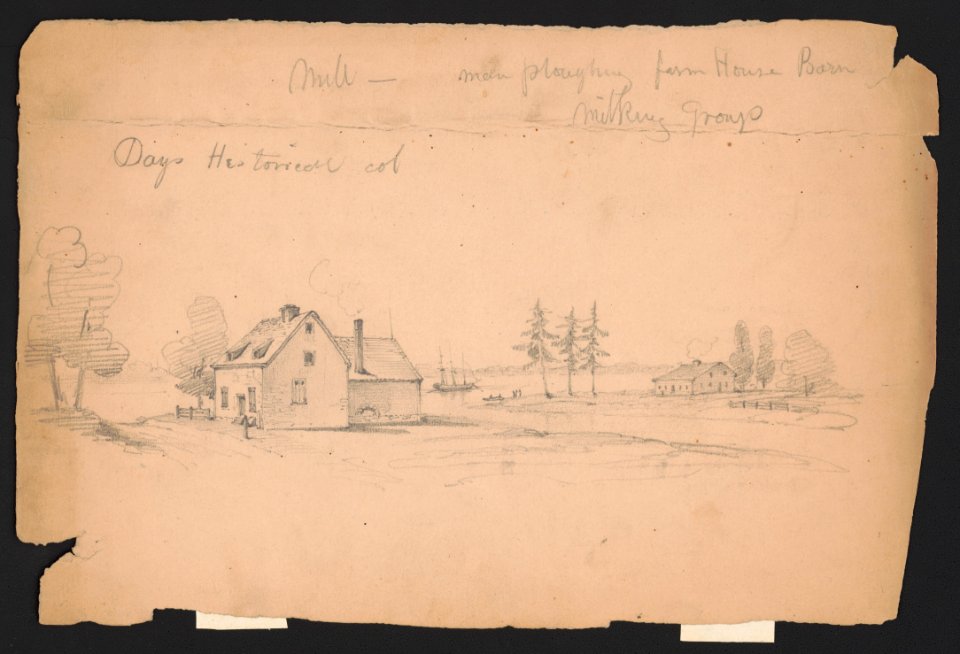 Mill — man ploughing farm House Barn
Milking Group
Days Historical col